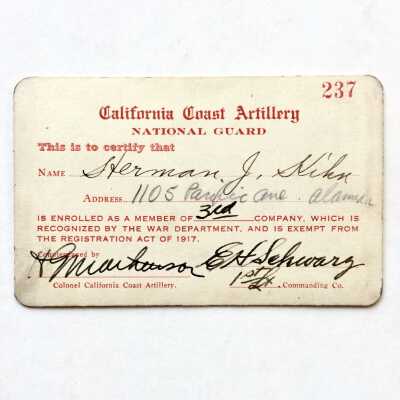 237
California Coast Artillery
NATIONAL GUARD
This is to certify that
NAME Herman J. Kihn
ADDRESS 1105 Pacific Ave. Alameda
IS ENROLLED AS A MEMBER OF 3rd COMPANY, WHICH IS
RECOGNIZED BY THE WAR DEPARTMENT, AND IS EXEMPT FROM
THE REGISTRATION ACT OF 1917.
Countersigned by
E H Schwarz
1st Lt
Colonel California Coast Artillery. Commanding Co.